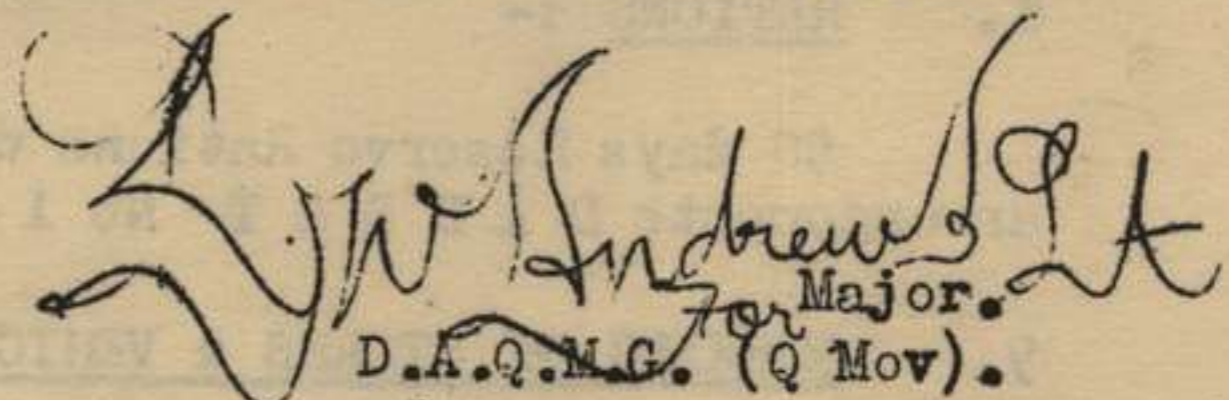 W Andrews Lt
For Major.
D.A.Q.M.G. (Q Mov).